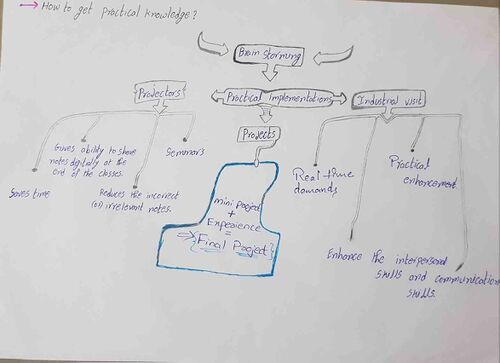 → How to get practical knowledge?
Brain storming
{Projectors}
Practical implementations
Industrial visit
Projects
Gives ability to share
notes digitally at the
end of the classes.
Seminars
Saves time
Reduces the incorrect
(or) irrelevant notes.
mini project
+
Experience
=
→ {Final Project}
Real-time
demands
Practical
enhancement
Enhance the interpersonal
skills and communication
skills.